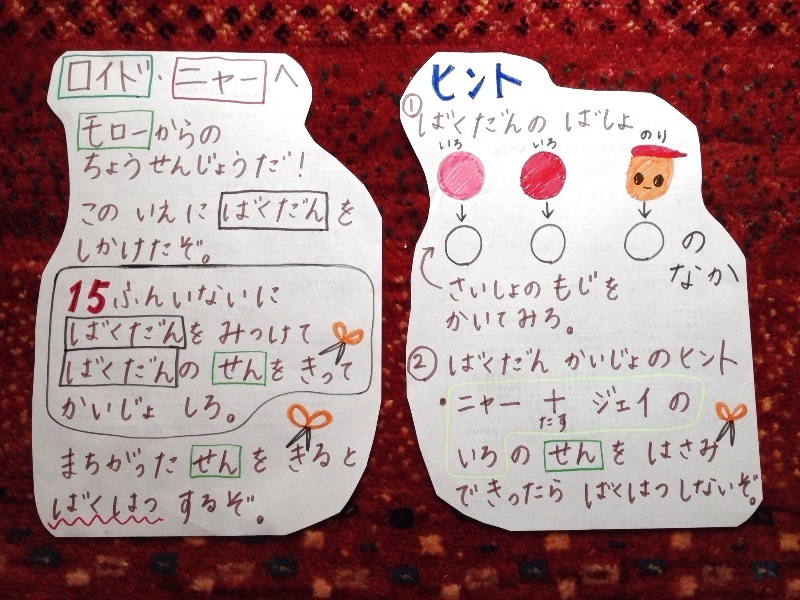 ロイド・ニャーへ
モローからの
ちょうせんじょうだ!
このいえに ばくだんを
しかけたぞ。
15ふんいないに
ばくだんを みつけて
ばくだんの せんを きって
かいじょ しろ。
まちがった せんを きると
ばくはつ するぞ。
ヒント
① ばくだんの ばしょ
いろ いろ のり
↓ ↓ ↓
○ ○ ○ の
なか
さいしょの もじを
かいてみろ。
② ばくだん かいじょのヒント
・ニャー + ジェイの
たす
いろの せんを はさみ
できったら ばくはつしないぞ。